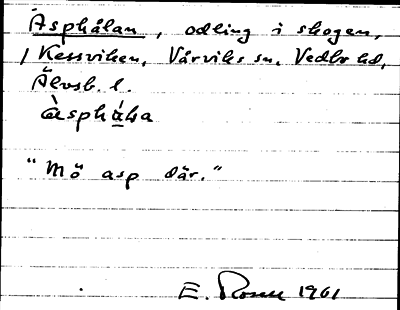 Asphålan, odling i skogen,
/ Kessviken, Vårviks sn, Vedbo hd,
Älvsb. l.
àsphá̊ɬa
"Mö asp där."
E. Rosell 1961